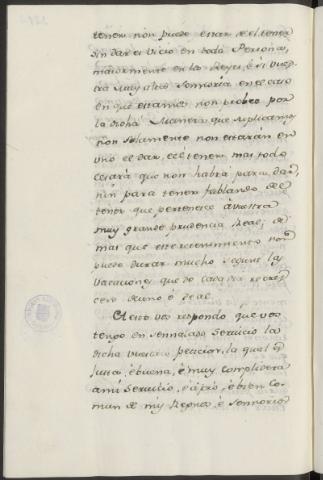 tener non puede estar, de el tener
sin dar es vicio en toda Persona,
maiormente en los Reyes, è si vues
tra muy alta Señoria en el caso
en que estamos non probee por
la dicha manera que suplicamos
non solamente non estarán en
uno el dar, è el tener mas todo
cesará que non habrá para dar,
nin para tener fablando de el
tener que pertenece à vuestra
muy grande prudencia Real, de
mas que este retenimiento non
puede durar mucho segunt las
vacaciones que de cada dia recres
cen de uno è de al.
A esto vos respondo que vos
tengo en señalado servicio la
dicha vuestra peticion, la qual es
justa, è buena, è muy complidera
a mi servicio, è à pro, è bien co-
mun de mis Regnos, è Señorios